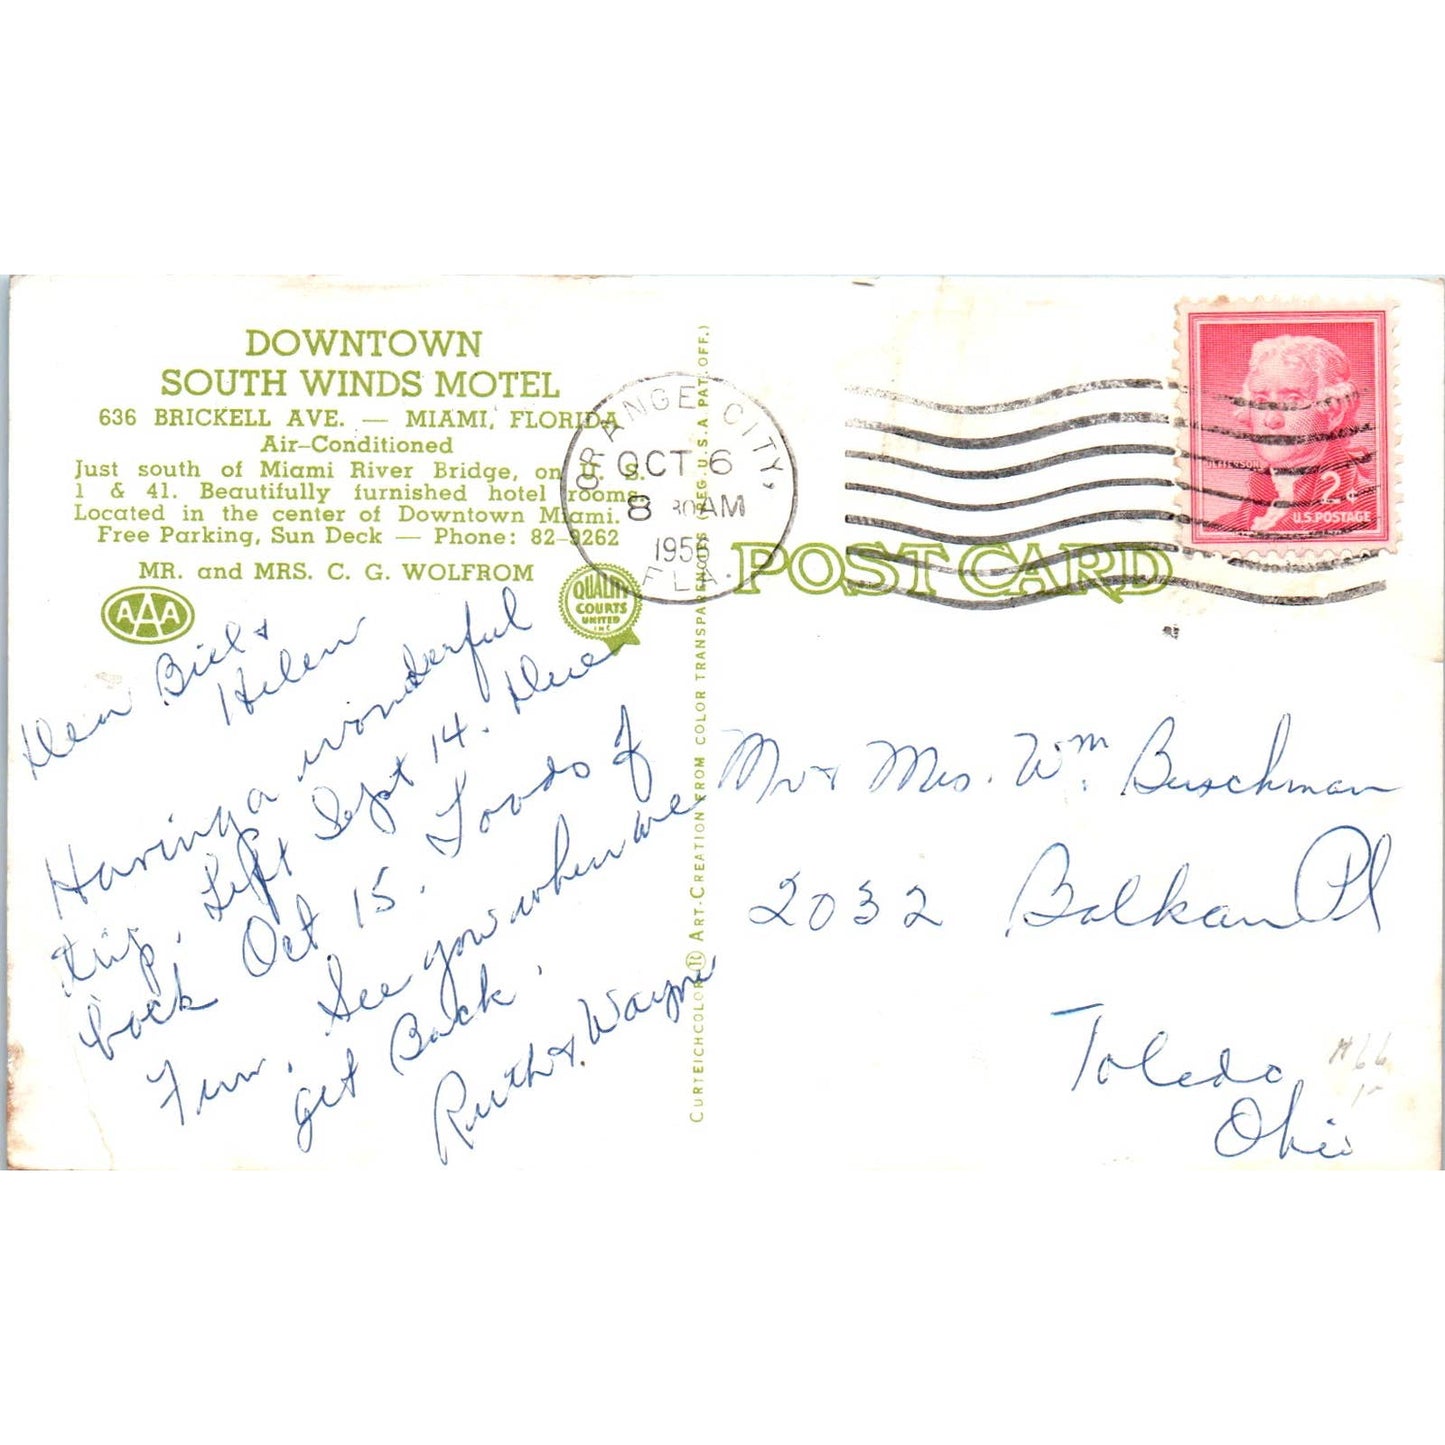 DOWNTOWN
SOUTH WINDS MOTEL
636 BRICKELL AVE. — MIAMI, FLORIDA
Air-Conditioned
Just south of Miami River Bridge, on U. S.
1 & 41. Beautifully furnished hotel rooms.
Located in the center of Downtown Miami.
Free Parking, Sun Deck — Phone: 82-9262
MR. and MRS. C. G. WOLFROM
AAA
QUALITY
COURTS
UNITED
INC
Dear Bill &
Helen
Having a wonderful
trip. Left Sept 14. Due
back Oct 15. Loads of
Fun. See you when we
get Back.
Ruth & Wayne
CURTEICHCOLOR ® ART-CREATION FROM COLOR TRANSPARENCIES (REG. U.S.A. PAT. OFF.)
ORANGE CITY,
OCT 6
8 30 AM
FLA.
POST CARD
JEFFERSON
2¢
U.S. POSTAGE
Mr & Mrs. Wm. Buschman
2032 Balkan Pl
Toledo
Ohio